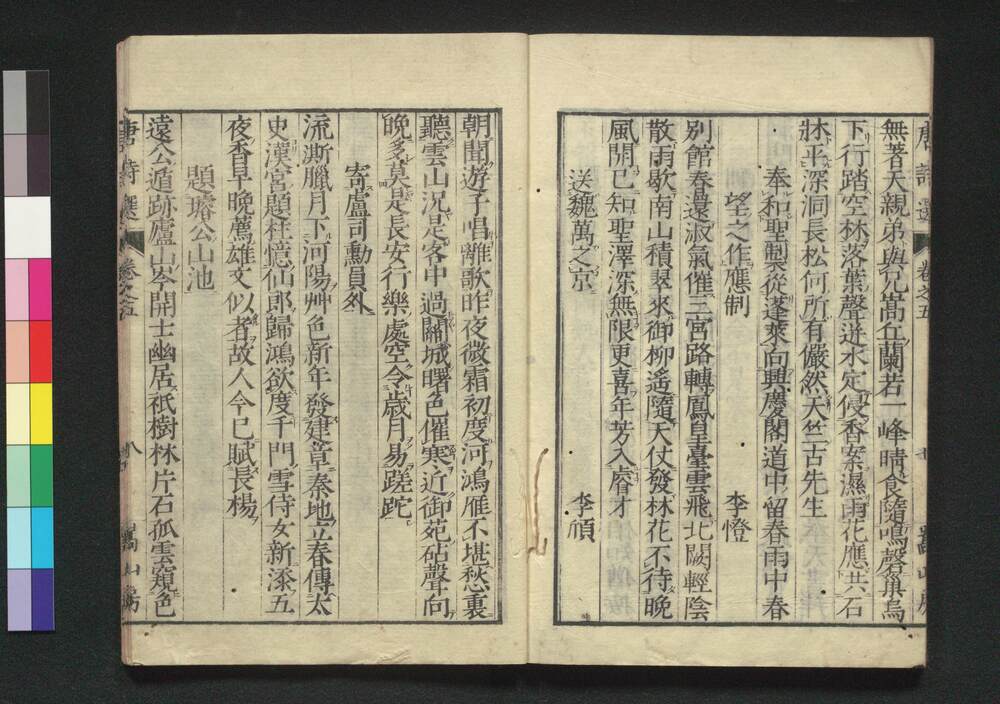 唐詩選 卷之五 七 嵩山房
無著天親弟與兄嵩丘蘭若一峰晴食隨鳴磬巢烏
下行踏空林落葉聲迸水定侵香案濕雨花應共石
牀平深洞長松何所有儼然天竺古先生
奉和聖製從蓬萊向興慶閣道中留春雨中春
望之作應制
李憕
別館春還淑氣催三宮路轉鳳皇臺雲飛北闕輕陰
散雨歇南山積翠來御柳遙隨天仗發林花不待曉
風開已知聖澤深無限更喜年芳入睿才
送魏萬之京
李頎
朝聞遊子唱離歌昨夜微霜初度河鴻雁不堪愁裏
聽雲山況是客中過關城曙色催寒近御苑砧聲向
晚多莫是長安行樂處空令歲月易蹉跎
寄盧司勳員外
流澌臘月下河陽艸色新年發建章秦地立春傳太
史漢宮題柱憶仙郎歸鴻欲度千門雪侍女新添五
夜香早晚薦雄文似者故人今已賦長楊
題璿公山池
遠公遁跡廬山岑開士幽居祇樹林片石孤雲窺色
唐詩選 卷之五 八 嵩山房